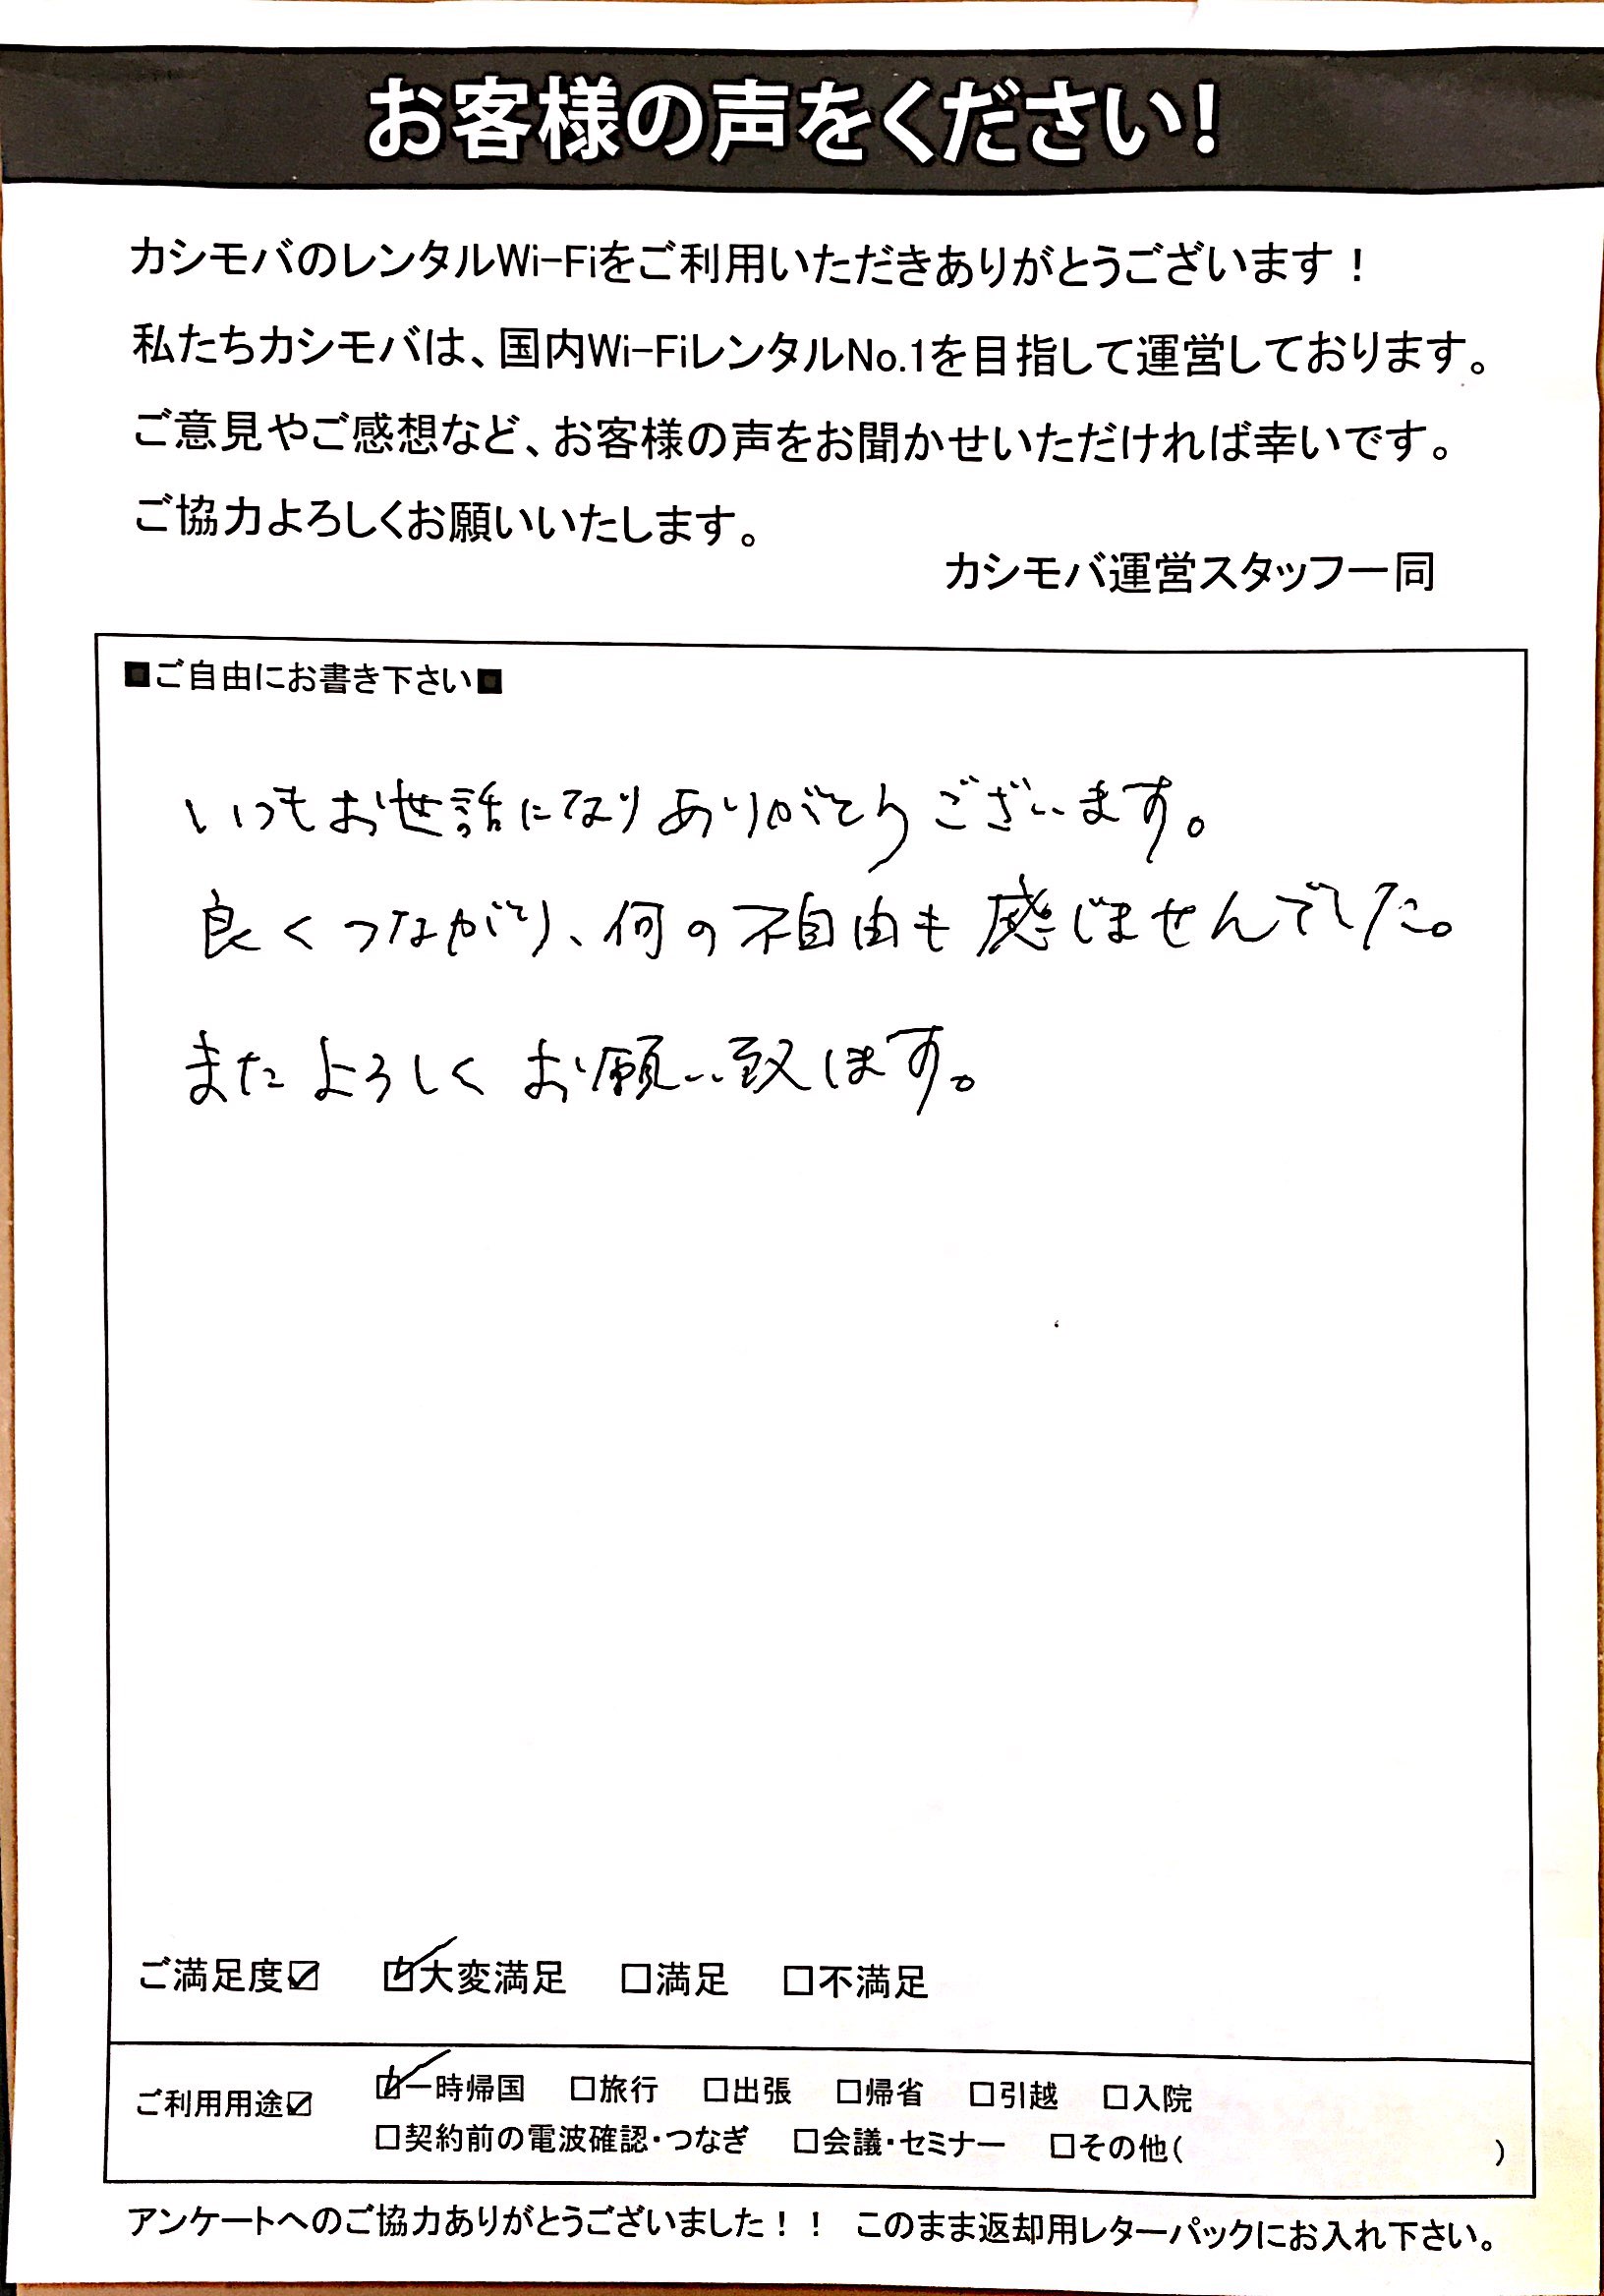 お客様の声をください!
カシモバのレンタルWi-Fiをご利用いただきありがとうございます！
私たちカシモバは、国内Wi-FiレンタルNo.1を目指して運営しております。
ご意見やご感想など、お客様の声をお聞かせいただければ幸いです。
ご協力よろしくお願いいたします。
カシモバ運営スタッフ一同
■ご自由にお書き下さい■
いつもお世話になりありがとうございます。
良くつながり、何の不自由も感じませんでした。
またよろしくお願い致します。
ご満足度☑ ☑大変満足 □満足 □不満足
ご利用用途☑ ☑一時帰国 □旅行 □出張 □帰省 □引越 □入院
□契約前の電波確認・つなぎ □会議・セミナー □その他( )
アンケートへのご協力ありがとうございました！！ このまま返却用レターパックにお入れ下さい。